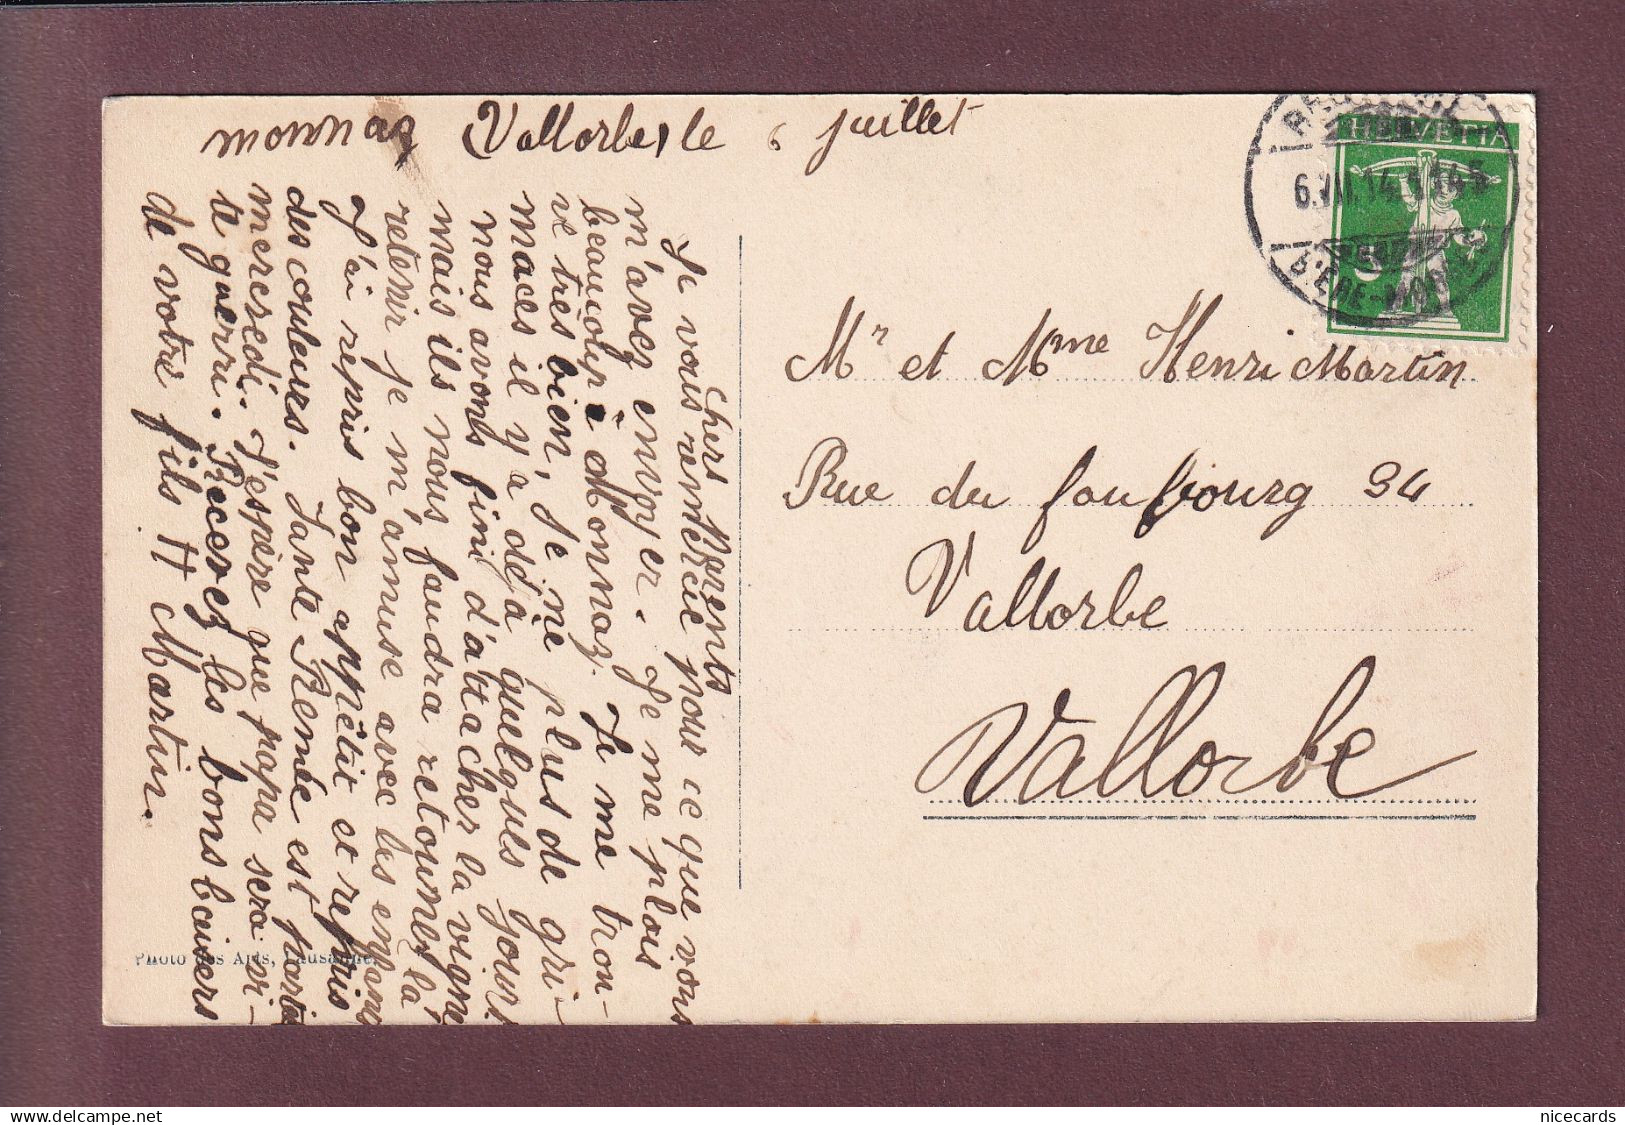 monnaz Vallorbe, le 6 juillet
chers Parents
Je vous remercie pour ce que vous
m'avez envoyer. Je me plais
beaucoup à Monnaz. Je me trou-
ve très bien, Je ne plus de gri-
maces il y a déjà quelques jours.
nous avons fini d'attacher la vigne
mais ils nous faudra retourner là
retenir Je m'amuse avec les enfants
J'ai repris bon appêtit et repris
des couleurs. Tante Renée est partie
mercredi. J'espère que papa sera vi-
te guerri. Recevez les bons baisers
de votre fils H Martin.
Photo des Arts, Lausanne.
HELVETIA
6.VII.14.
Mr et Mme Henri Martin
Rue du foufbourg 34
Vallorbe
Vallorbe
nicecards